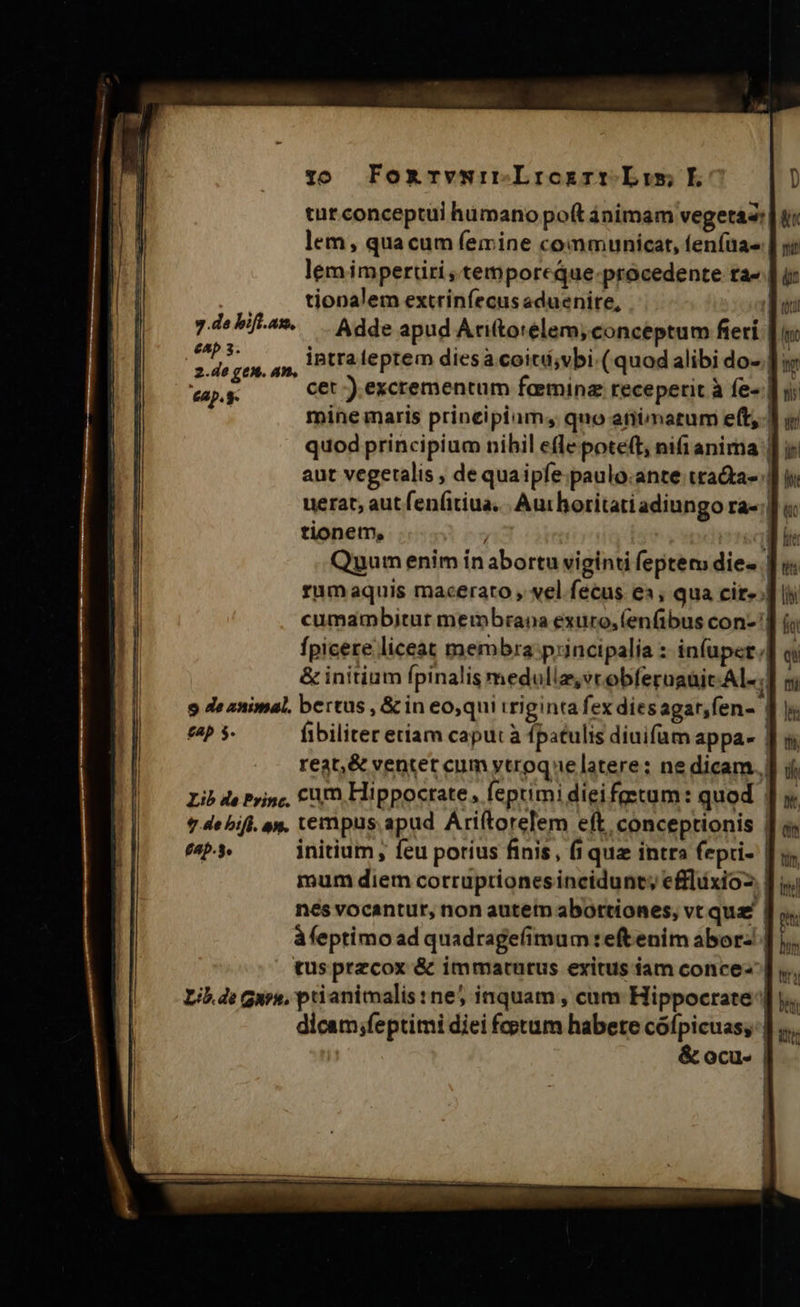 10 FORTVNII LICETI LIB. I.
tur conceptui humano poſt animam vegeta-
lem, qua cum ſemine communicat, ſenſua-
lem impertiri, temporeque procedente ra-
tionalem extrinſecus aduenire,
7. de hiſt. an. cap 3.
Adde apud Ariſtotelem, conceptum fieri
2. de gen. an. cap. 3.
intra ſeptem dies à coitu, vbi (quod alibi do-
cet) excrementum fœminæ receperit à ſe-
mine maris principium, quo animatum eſt,
quod principium nihil eſſe poteſt, niſi anima
aut vegetalis, de qua ipſe paulo ante tracta-
uerat, aut ſenſitiua. Authoritati adiungo ra-
tionem,
Quum enim in abortu viginti ſeptem die-
rum aquis macerato, vel ſecus ea, qua cir-
cumambitur membrana exuto, ſenſibus con-
ſpicere liceat membra principalia: inſuper
& initium ſpinalis medullæ, vt obſeruauit Al-
9 de animal. cap 5.
bertus, & in eo, qui triginta ſex dies agat, ſen-
ſibiliter etiam caput à ſpatulis diuiſum appa-
reat, & venter cum vtroque latere: ne dicam
Lib de Princ.
cum Hippocrate, ſeptimi diei fœtum: quod
7 de hiſt. an. cap. 3.
tempus apud Ariſtotelem eſt, conceptionis
initium, ſeu potius finis, ſi quæ intra ſepti-
mum diem corruptiones incidunt, effluxio-
nes vocantur, non autem abortiones, vt quæ
à ſeptimo ad quadrageſimum: eſt enim abor-
tus præcox & immaturus exitus iam conce-
Lib. de Carn.
pti animalis: ne, inquam, cum Hippocrate
dicam, ſeptimi diei fœtum habere cõſpicuas,
& ocu-